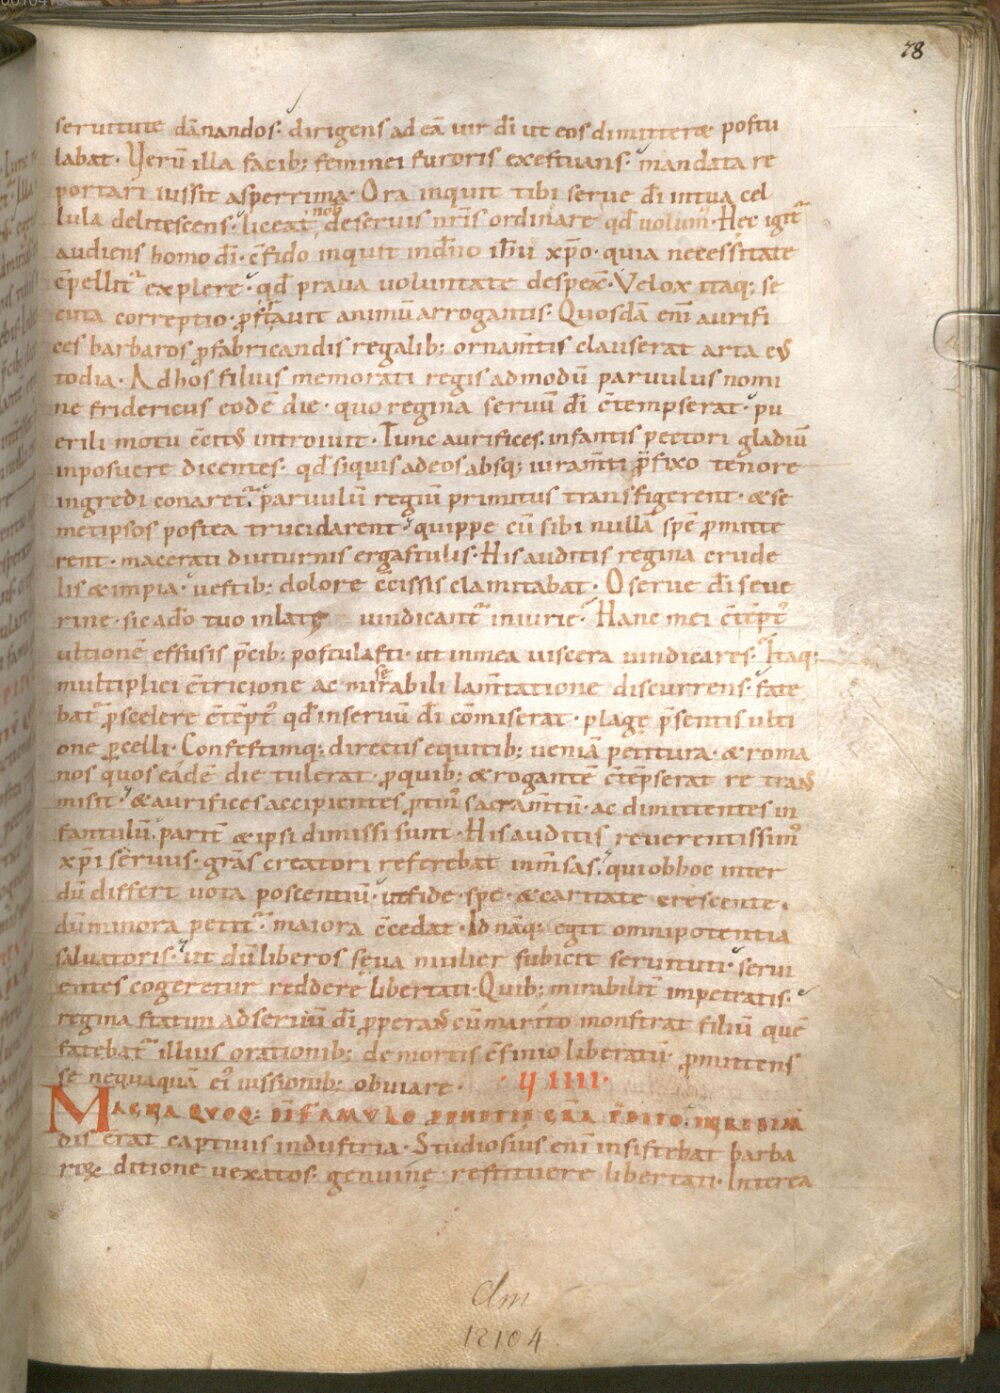 78
seruitute dānandos· dirigens ad eā uir dī ut eos dimitteret postu
labat· Verū illa facib; feminei furoris exestuans· mandata re
portari iussit asperrima· Ora inquit tibi serue dī in tua cel
lula delitescens· liceat nob de seruis nr̄is ordinare qd̄ uolum᷒· Hec igit᷒
audiens homo dī· c̄fido inquit in dn̄o ih̄u xp̄o· quia necessitate
c̄pellit᷒ explere· qd̄ praua uoluntate despex̄· Velox itaq; se
cuta correptio· ꝓst̄uit animū arrogantis· Quosdā eni᷒ aurifi
ces barbaros ꝓ fabricandis regalib; ornam̄tis clauserat arta cus
todia· Ad hos filius memorati regis admodū paruulus nomi
ne fridericus eodē die· quo regina seruū dī c̄tempserat· pu
erili motu c̄cit᷒ introiuit· Tunc aurifices infantis pectori gladiū
inposuere dicentes· qd̄ siquis ad eos absq; iuram̄ti p̄fixo tenore
ingredi conaret᷒· paruulū regiū primitus transfigerent· & se
metipsos postea trucidarent· quippe cū sibi nullā spē ꝓmitte
rent· macerati diuturnis ergastulis· His auditis regina crude
lis & impia· uestib; dolore c̄cissis clamitabat· O serue dī seue
rine· sic a dō tuo inlatę uindicant᷒ iniurie· Hanc mei c̄tēpt᷒
ultionē effusis p̄cib; postulasti· ut in mea uiscera uindicares· Itaq;
multiplici c̄tricione ac miserabili lam̄tatione discurrens· fate
bat᷒ ꝓ scelere c̄tēpt᷒ qd̄ in seruū dī cōmiserat· plagę p̄sentis ulti
one ꝑcelli· Confestimq; directis equitib; ueniā petitura· & roma
nos quos eādē die tulerat· ꝓ quib; & rogantē c̄tēpserat re trans
misit· & aurifices accipientes ꝓtin᷒ sacram̄tū· ac dimittentes in
fantulū parit̄ & ipsi dimissi sunt· His auditis reuerentissim᷒
xp̄i seruus· grās creatori referebat inm̄sas· qui ob hoc inter
dū differt uota poscentiū· ut fide· spe· & caritate crescente·
dū minora petit᷒· maiora c̄cedat· Id nāq; egit omnipotentia
saluatoris· ut dū liberos seua mulier subicit seruituti· serui
entes cogeretur reddere libertati· Quib; mirabilit̄ impetratis·
regina statim ad seruū dī ꝓperans cū marito monstrat filiū quē
fatebat᷒ illius orationib; de mortis c̄finio liberatū· ꝓmittens
se nequaquā ei᷒ iussionib; obuiare· · VIIII·
MAGNA QVOQ; DĪ FAMVLO ꝒPHETIE GR̄A P̄DITO· IN REDIM
dis erat captiuis industria· Studiosius eni᷒ insistebat barba
roꝝ ditione uexatos· genuinę restituere libertati· Interea
Clm
12104